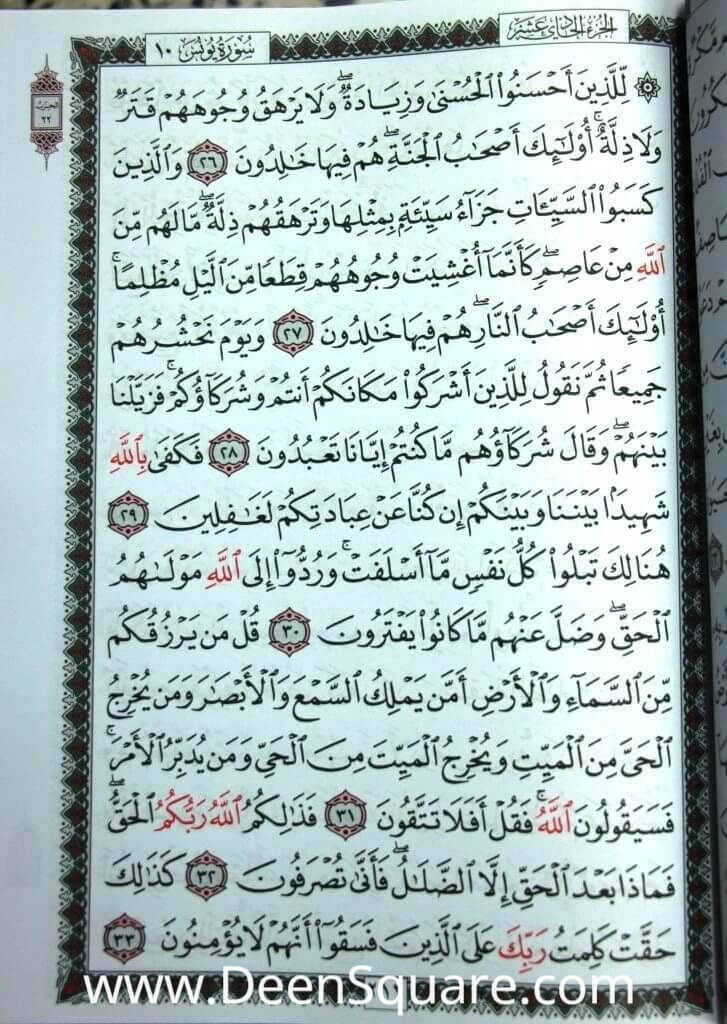 الجزء الحادي عشر
سورة يونس ١٠
الحزب
٢٢
۞ لِّلَّذِينَ أَحْسَنُوا۟ ٱلْحُسْنَىٰ وَزِيَادَةٌ ۖ وَلَا يَرْهَقُ وُجُوهَهُمْ قَتَرٌ
وَلَا ذِلَّةٌ ۚ أُو۟لَـٰٓئِكَ أَصْحَـٰبُ ٱلْجَنَّةِ ۖ هُمْ فِيهَا خَـٰلِدُونَ ٢٦ وَٱلَّذِينَ
كَسَبُوا۟ ٱلسَّيِّـَٔاتِ جَزَآءُ سَيِّئَةٍۭ بِمِثْلِهَا وَتَرْهَقُهُمْ ذِلَّةٌ ۖ مَّا لَهُم مِّنَ
ٱللَّهِ مِنْ عَاصِمٍ ۖ كَأَنَّمَآ أُغْشِيَتْ وُجُوهُهُمْ قِطَعًا مِّنَ ٱلَّيْلِ مُظْلِمًا ۚ
أُو۟لَـٰٓئِكَ أَصْحَـٰبُ ٱلنَّارِ ۖ هُمْ فِيهَا خَـٰلِدُونَ ٢٧ وَيَوْمَ نَحْشُرُهُمْ
جَمِيعًا ثُمَّ نَقُولُ لِلَّذِينَ أَشْرَكُوا۟ مَكَانَكُمْ أَنتُمْ وَشُرَكَآؤُكُمْ ۚ فَزَيَّلْنَا
بَيْنَهُمْ ۖ وَقَالَ شُرَكَآؤُهُم مَّا كُنتُمْ إِيَّانَا تَعْبُدُونَ ٢٨ فَكَفَىٰ بِٱللَّهِ
شَهِيدًۢا بَيْنَنَا وَبَيْنَكُمْ إِن كُنَّا عَنْ عِبَادَتِكُمْ لَغَـٰفِلِينَ ٢٩
هُنَالِكَ تَبْلُوا۟ كُلُّ نَفْسٍ مَّآ أَسْلَفَتْ ۚ وَرُدُّوٓا۟ إِلَى ٱللَّهِ مَوْلَىٰهُمُ
ٱلْحَقِّ ۖ وَضَلَّ عَنْهُم مَّا كَانُوا۟ يَفْتَرُونَ ٣٠ قُلْ مَن يَرْزُقُكُم
مِّنَ ٱلسَّمَآءِ وَٱلْأَرْضِ أَمَّن يَمْلِكُ ٱلسَّمْعَ وَٱلْأَبْصَـٰرَ وَمَن يُخْرِجُ
ٱلْحَىَّ مِنَ ٱلْمَيِّتِ وَيُخْرِجُ ٱلْمَيِّتَ مِنَ ٱلْحَىِّ وَمَن يُدَبِّرُ ٱلْأَمْرَ ۚ
فَسَيَقُولُونَ ٱللَّهُ ۚ فَقُلْ أَفَلَا تَتَّقُونَ ٣١ فَذَٰلِكُمُ ٱللَّهُ رَبُّكُمُ ٱلْحَقُّ ۖ
فَمَاذَا بَعْدَ ٱلْحَقِّ إِلَّا ٱلضَّلَـٰلُ ۖ فَأَنَّىٰ تُصْرَفُونَ ٣٢ كَذَٰلِكَ
حَقَّتْ كَلِمَتُ رَبِّكَ عَلَى ٱلَّذِينَ فَسَقُوٓا۟ أَنَّهُمْ لَا يُؤْمِنُونَ ٣٣
www.DeenSquare.com